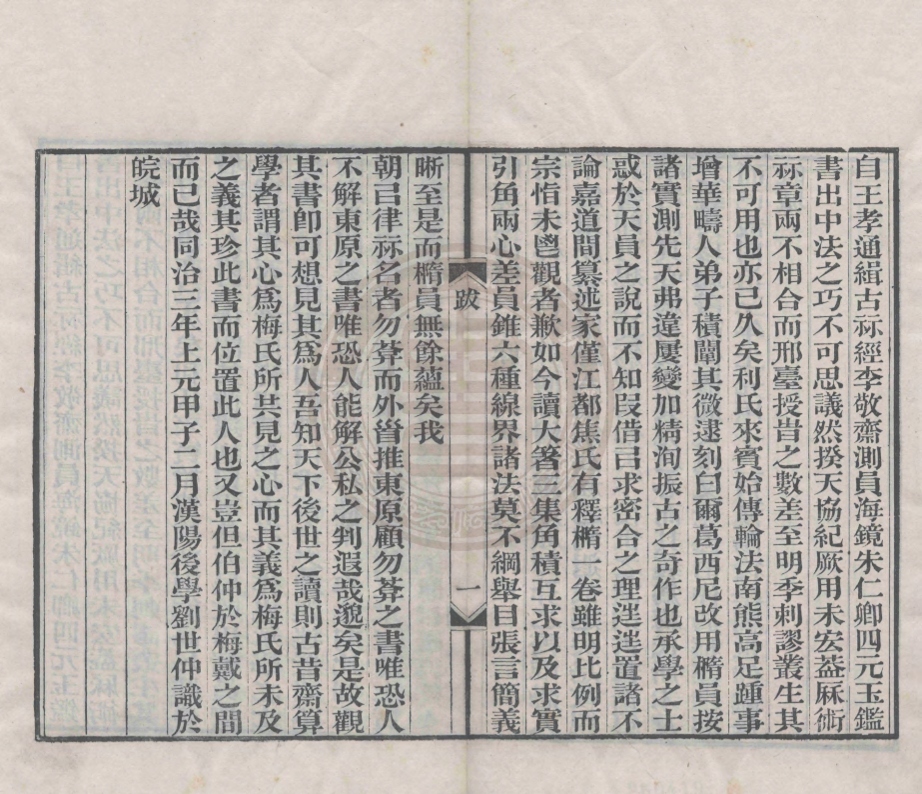 自王孝通緝古祘經李敬齋測員海鏡朱仁卿四元玉鑑
書出中法之巧不可思議然揆天協紀厥用未宏葢厤術
祘章兩不相合而邢臺授旹之數差至明季刺謬叢生其
不可用也亦已久矣利氏來賓始傳輪法南熊高足踵事
增華疇人弟子積闡其微逮刻臼爾葛西尼改用橢員按
諸實測先天弗違屢變加精洵振古之奇作也承學之士
惑於天員之說而不知叚借㠯求密合之理𨔶𨔶置諸不
論嘉道間纂述家僅江都焦氏有釋橢一卷雖明比例而
宗恉未鬯觀者歉如今讀大箸三集角積互求以及求實
引角兩心差員錐六種線界諸法莫不綱舉目張言簡義
跋
一
晰至是而橢員無餘蘊矣我
朝㠯律祘名者勿葊而外咠推東原顧勿葊之書唯恐人
不解東原之書唯恐人能解公私之判遐哉邈矣是故觀
其書卽可想見其爲人吾知天下後世之讀則古昔齋算
學者謂其心爲梅氏所共見之心而其義爲梅氏所未及
之義其珍此書而位置此人也又豈但伯仲於梅戴之間
而已哉同治三年上元甲子二月漢陽後學劉世仲識於
皖城